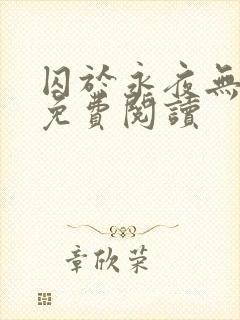 囚於永夜無
免費閱讀
章欣荣